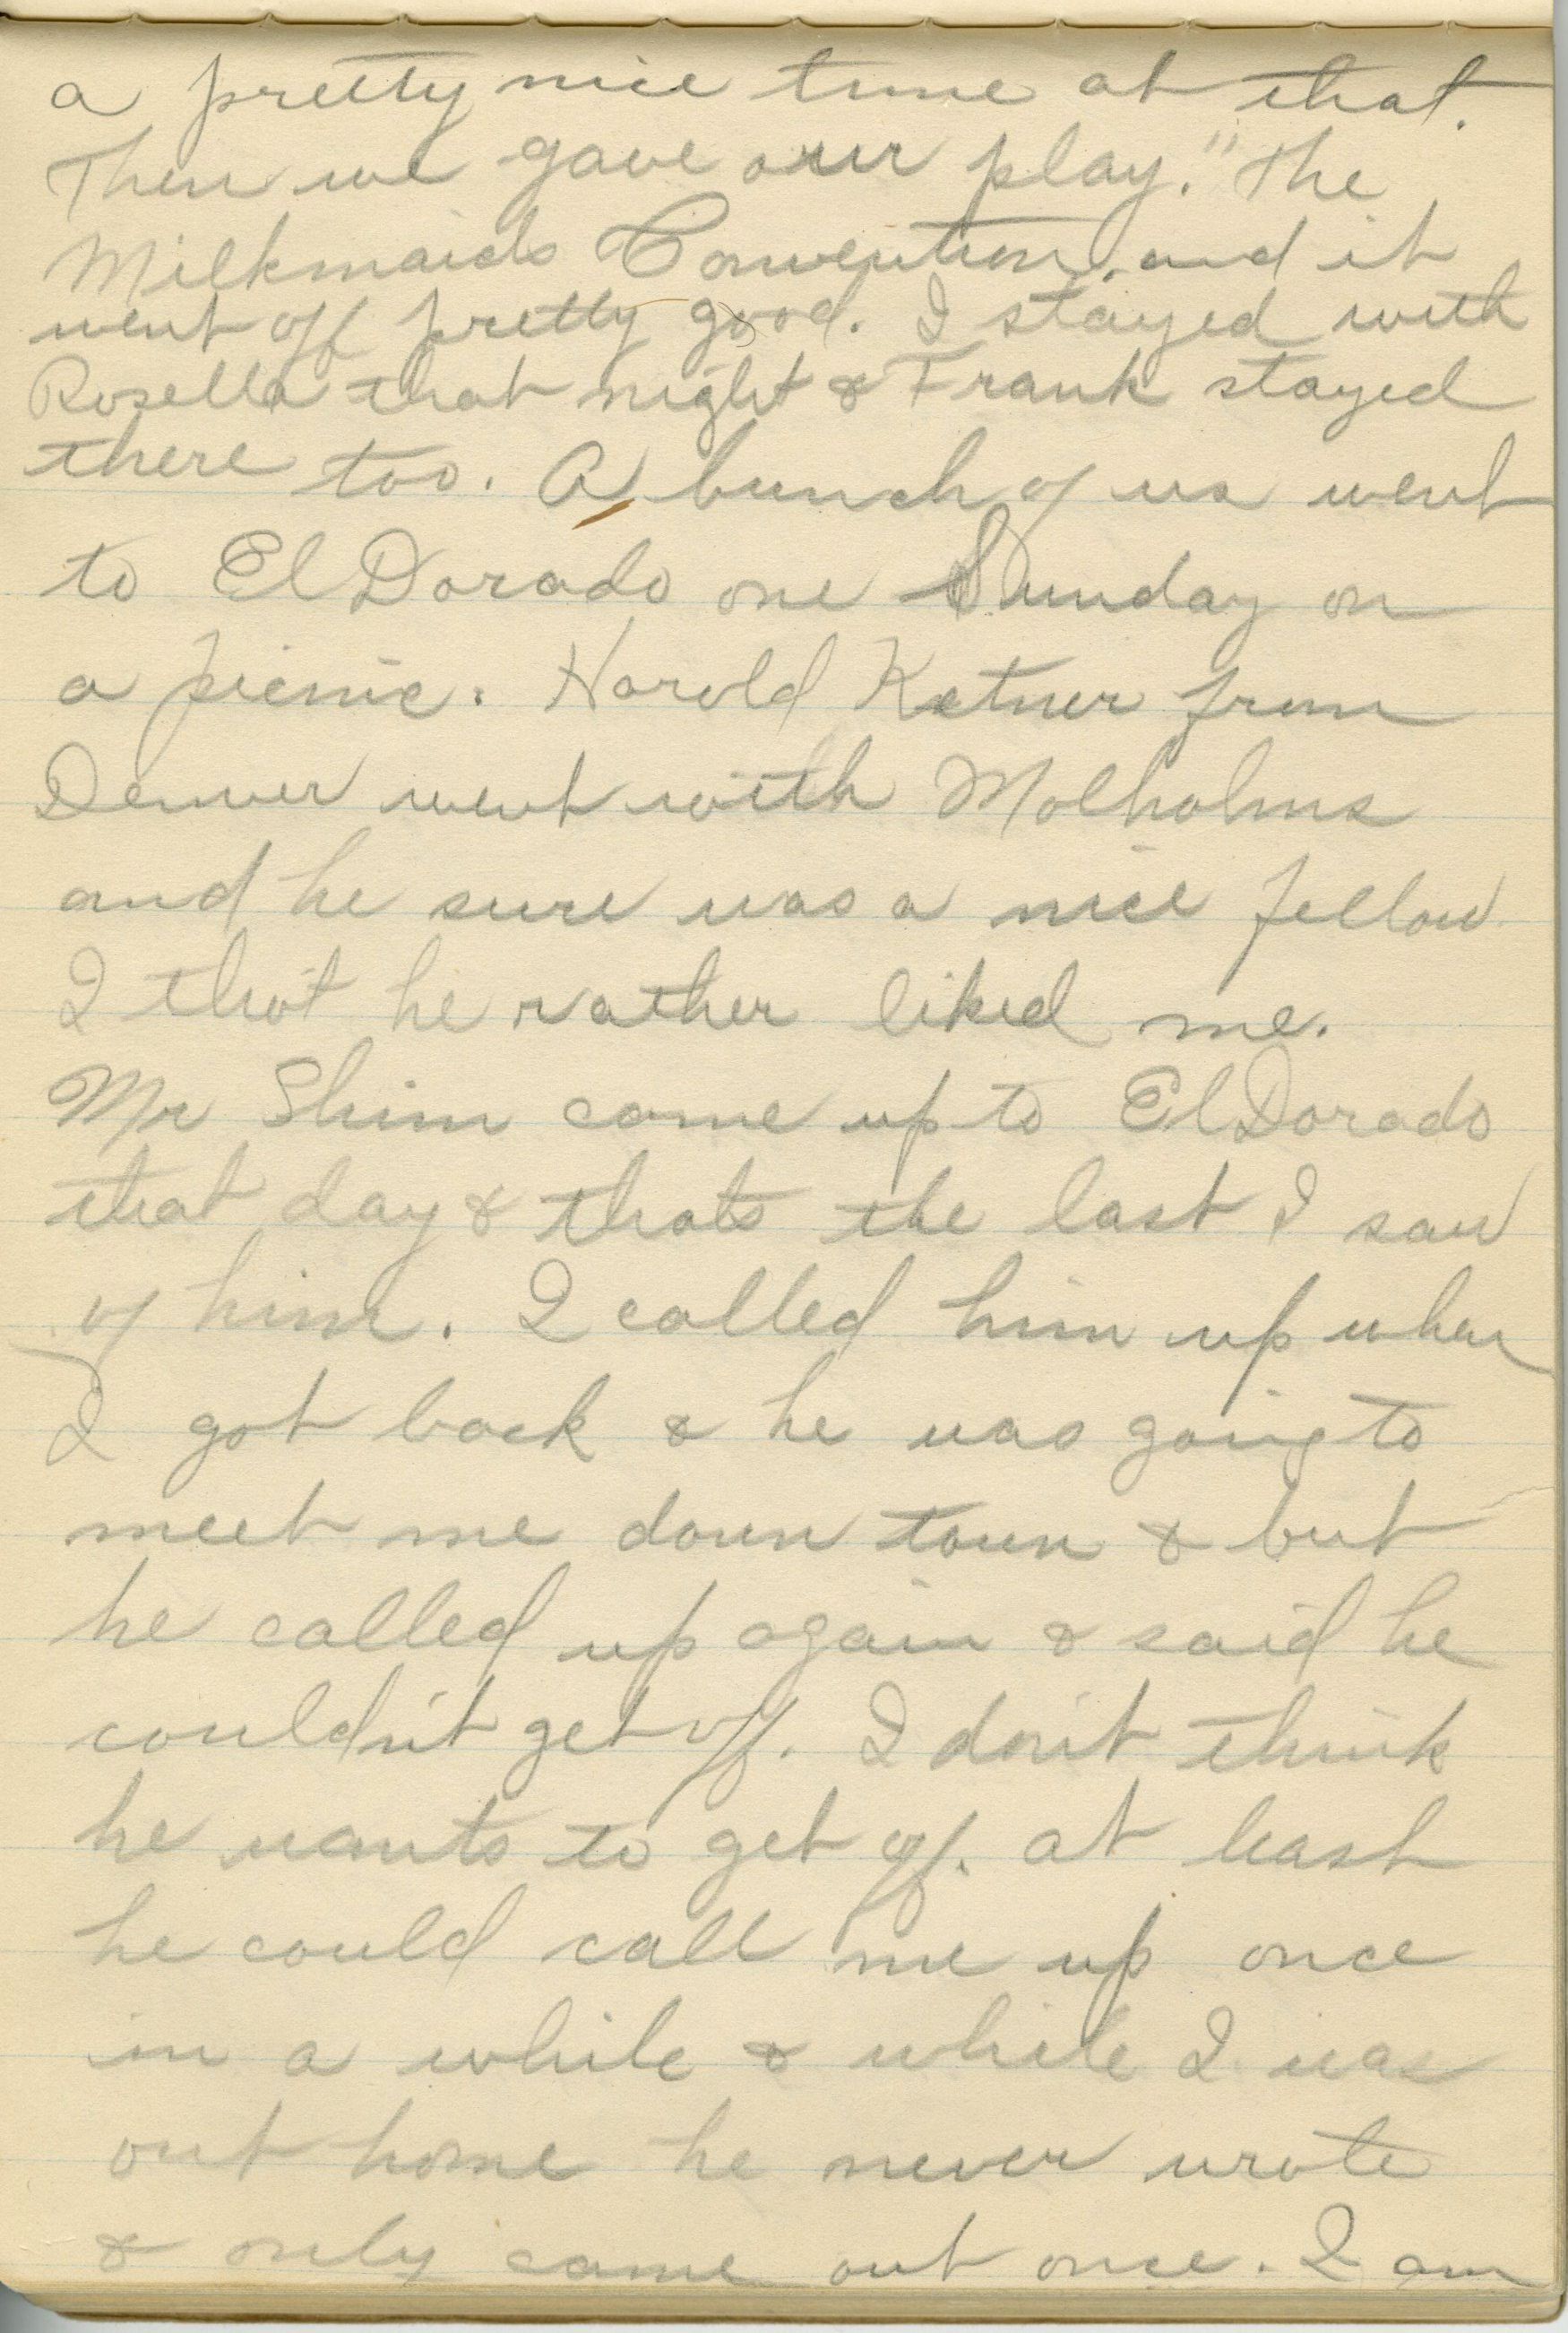 a pretty nice time at that.
Then we gave our play. "The
Milkmaids Convention, and it
went off pretty good. I stayed with
Rosella that night & Frank stayed
there too. A bunch of us went
to El Dorado one Sunday on
a picnic. Harold Ketner from
Denver went with Molholms
and he sure was a nice fellow
I thot he rather liked me.
Mr Shim come up to El Dorado
that day & thats the last I saw
of him. I called him up when
I got back & he was going to
meet me down town & but
he called up again & said he
couldn't get off. I don't think
he wants to get off. at least
he could call me up once
in a while & while I was
out home he never wrote
& only came out once. I am